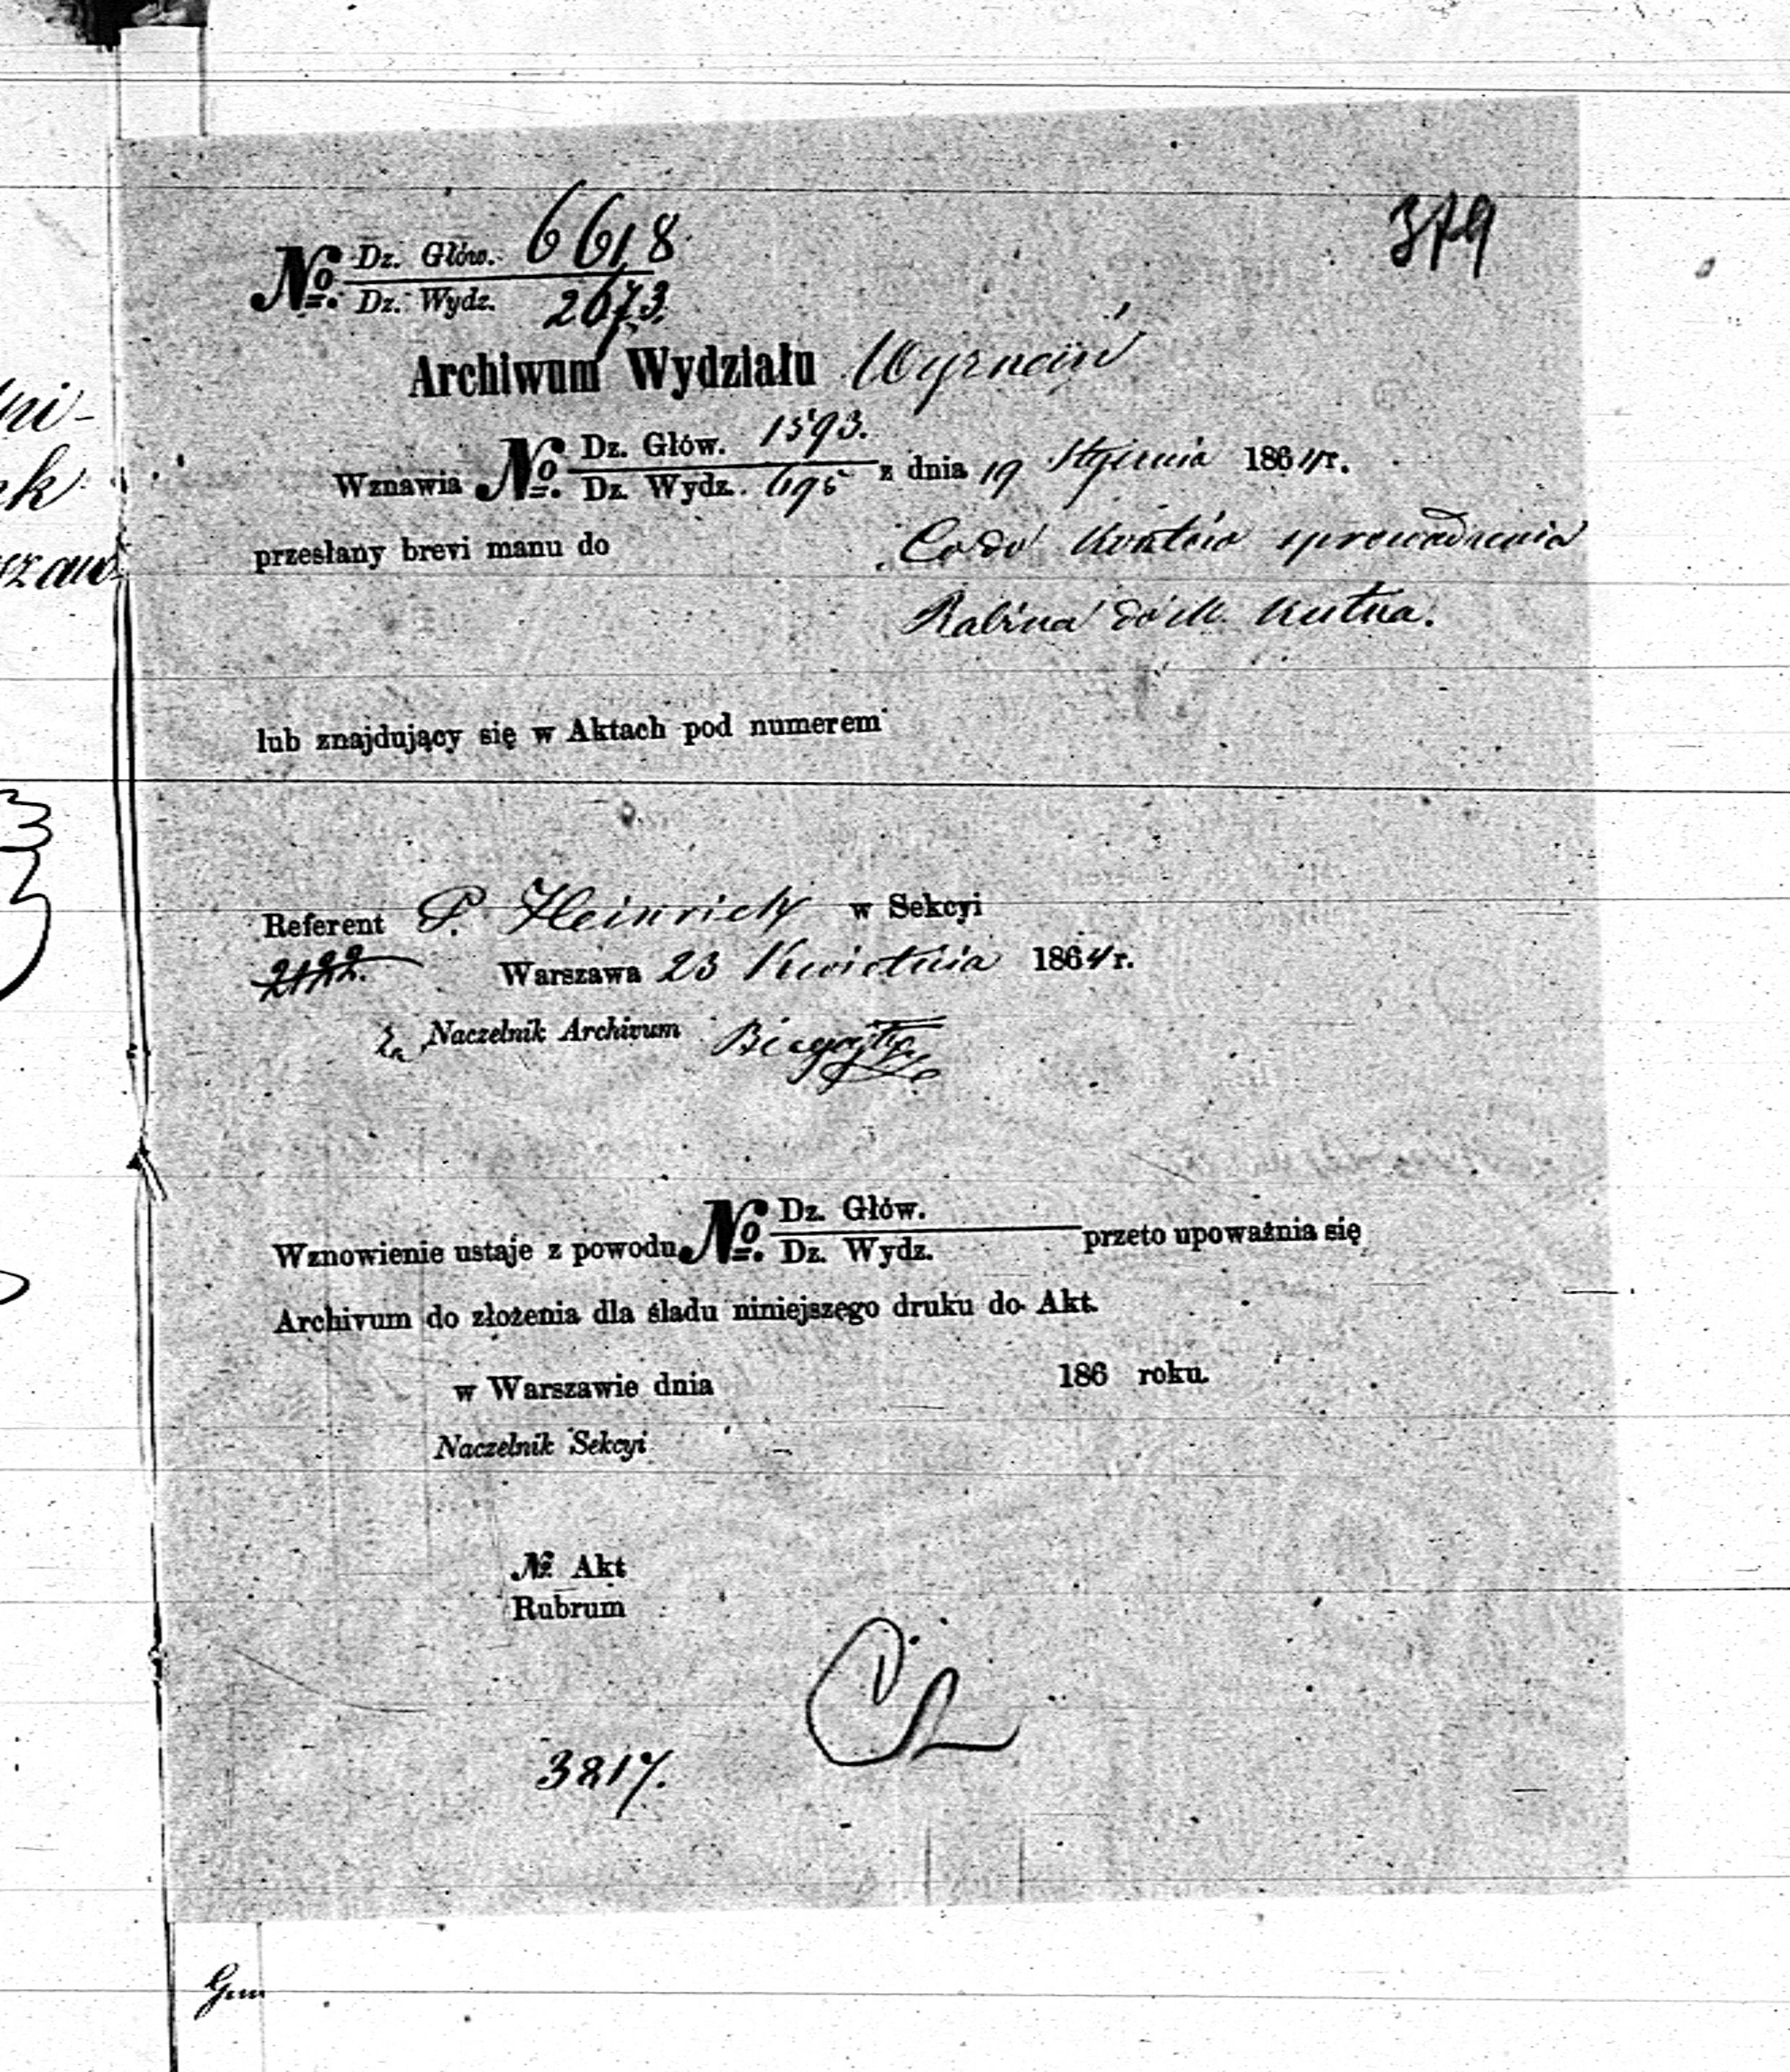 379
№ Dz. Głów. 6618
Dz. Wydz. 2673.
Archiwum Wydziału Wyznań
Wznawia № Dz. Głów. 1593. z dnia 19 Stycznia 1864 r.
Dz. Wydz. 695
przesłany brevi manu do Co do kosztów sprowadzenia
Rabina do m. Kutna.
lub znajdujący się w Aktach pod numerem
Referent P. Heinrich w Sekcyi
Warszawa 23 Kwietnia 1864 r.
Za Naczelnik Archivum
Wznowienie ustaje z powodu № Dz. Głów. przeto upoważnia się
Dz. Wydz.
Archivum do złożenia dla śladu niniejszego druku do Akt.
w Warszawie dnia 186 roku.
Naczelnik Sekcyi
№ Akt
Rubrum
3817.